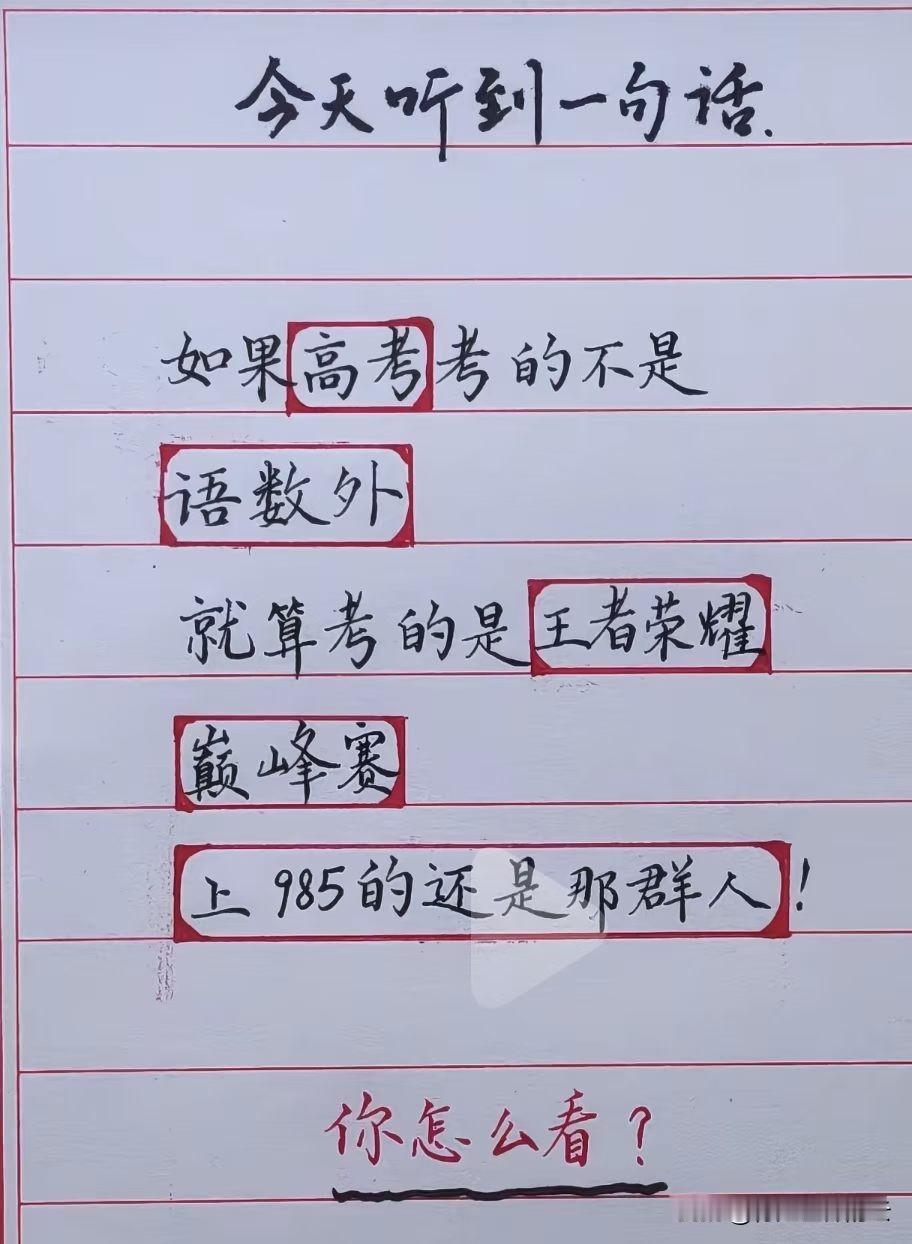 今天听到一句话.
如果高考考的不是
语数外
就算考的是王者荣耀
巅峰赛
上985的还是那群人！
你怎么看？